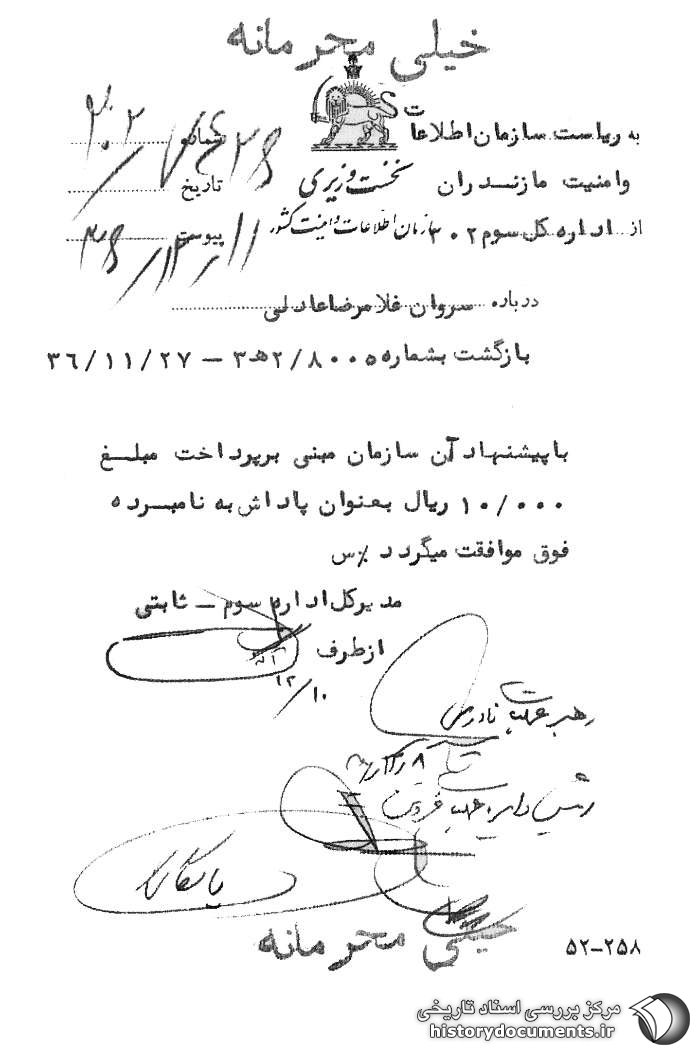 خیلی محرمانه
به ریاست سازمان اطلاعات
و امنیت مازندران
از اداره کل سوم ۳۰۲
نخست وزیری
سازمان اطلاعات و امنیت کشور
شماره
تاریخ
پیوست
درباره سروان غلامرضا عادلی
بازگشت بشماره ۲/۸۰۰۵هـ۳ – ۳۶/۱۱/۲۷
با پیشنهاد آن سازمان مبنی بر پرداخت مبلغ
۱۰/۰۰۰ ریال بعنوان پاداش به نامبرده
فوق موافقت میگردد ٪س
مدیر کل اداره سوم – ثابتی
از طرف
۱۲/۱۰
رهبر عملیات نادری
رئیس دایره عملیات
بایگانی
خیلی محرمانه
۵۲-۲۵۸
مرکز بررسی اسناد تاریخی
historydocuments.ir